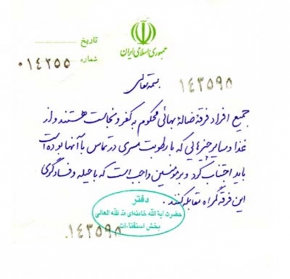 جمهوری اسلامی ایران
تاریخ
شماره ۰۱۴۲۵۵
بسمه‌تعالی
۱۴۳۵۹۵
جمیع افراد فرقهٔ ضالهٔ بهائی محکوم به کفر و نجاست هستند و از
غذا و سایر چیزهایی که با رطوبت مسری در تماس با آنها بوده است
باید اجتناب کرد و بر مؤمنین واجب است که با حیله و فسادگری
این فرقهٔ گمراه مقابله کنند.
دفتر
حضرت آیة الله خامنه‌ای مد ظله العالی
بخش استفتاءات
۱۴۳۵۹۵